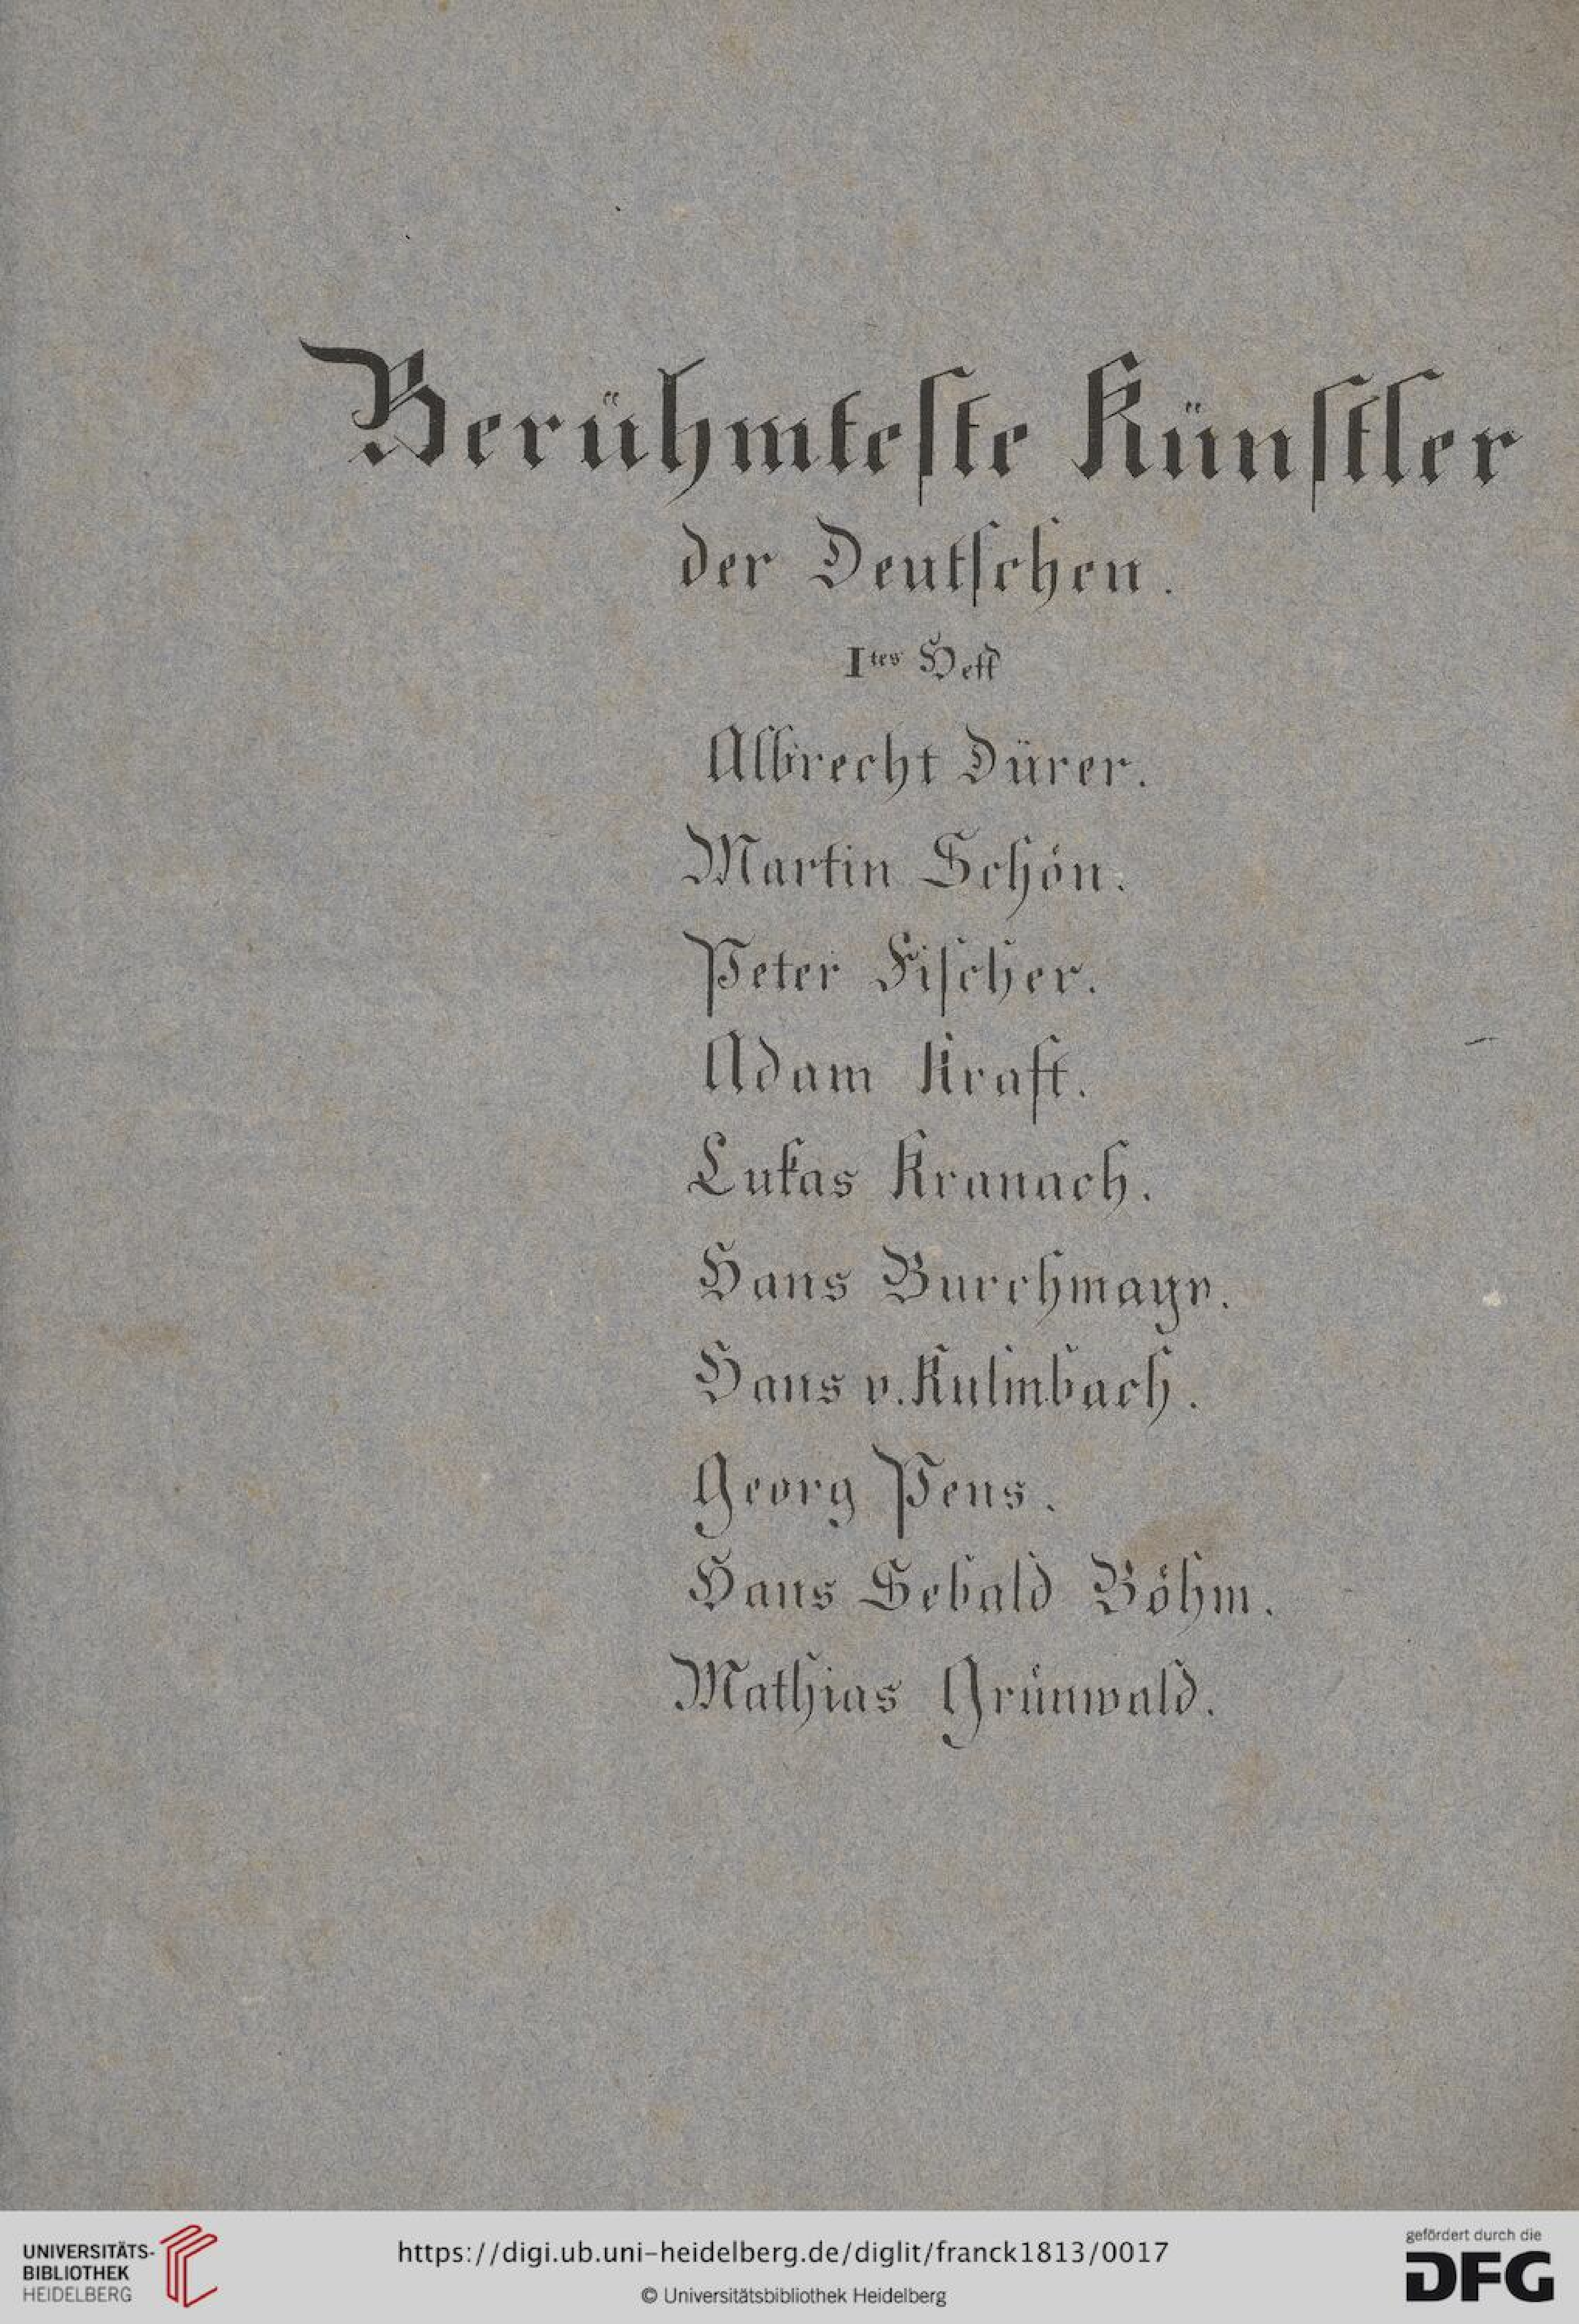 Berühmteste Künstler
der Deutschen.
Ites Heft
Albrecht Dürer.
Martin Schön.
Peter Fischer.
Adam Kraft.
Lukas Kranach.
Hans Burchmayr.
Hans v. Kulmbach.
Georg Pens.
Hans Sebald Böhm.
Mathias Grünwald.
UNIVERSITÄTS-
BIBLIOTHEK
HEIDELBERG
https://digi.ub.uni-heidelberg.de/diglit/franck1813/0017
© Universitätsbibliothek Heidelberg
gefördert durch die
DFG